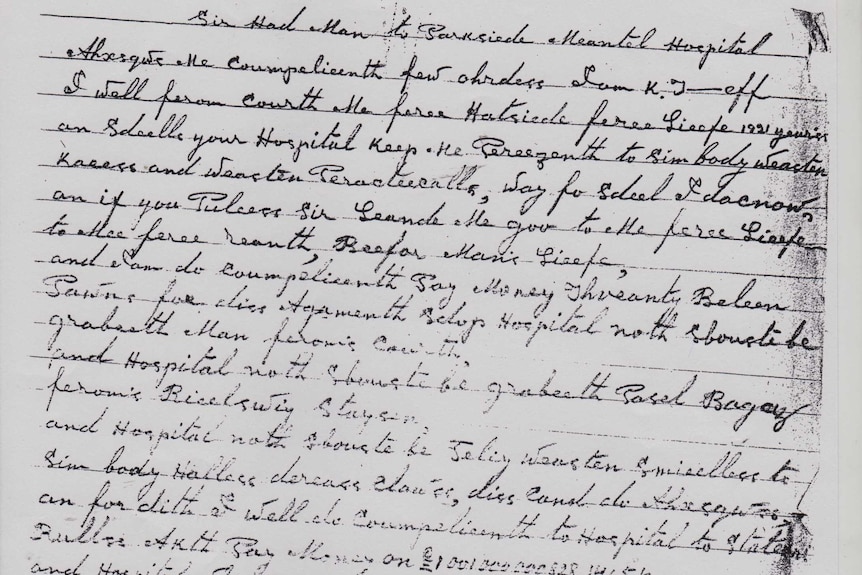 Sir Had Man to Parksiede Meantel Hospital
Ahxsgws Me Coumpelicenth few ohrdess I am K. J - eff
I well ferom Courth Me feree Hatsiede feree Lieefe 1991 year's
an Sdeells your Hospital Keep Me Pereezenth to Sim body weasten
Kacess and weasten Peracteecalls, way fo Sdeel I dacnow,
an if you Pulcess Sir Leande Me goo to Me feree Lieefe
to Mee feree reanth, Beefor Man's Lieefe,
and I am do Coumpelicenth Pay Money Thveanty Beleen
Pawns for diss Agamenth Sdop Hospital noth Sbouste be
grabeeth Man ferom's Courth,
and Hospital noth Sbouste be grabeeth Pasel Bagaz
ferom's Ricelswig Staysen,
and Hospital noth Sbouste be Jeliz weasten Smicelless to
Sim body Halless dereass Clawss, diss Cand do Ahxsgwss,
an for dith I well do Coumpelicenth to Hospital to Stateen
Rullss Akth Pay Money on
and Hospital